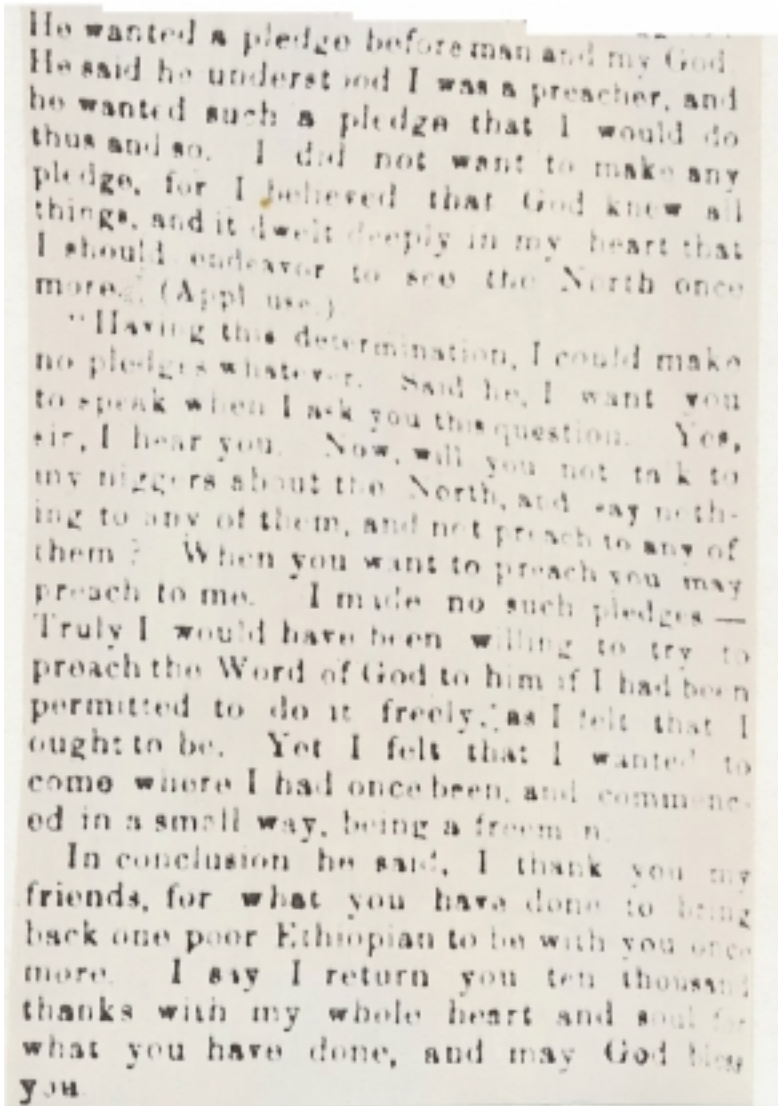 He wanted a pledge before man and my God
He said he understood I was a preacher, and
he wanted such a pledge that I would do
thus and so. I did not want to make any
pledge, for I believed that God knew all
things, and it dwelt deeply in my heart that
I should endeavor to see the North once
more. (Applause.)
"Having this determination, I could make
no pledges whatever. Said he, I want you
to speak when I ask you this question. Yes,
sir, I hear you. Now, will you not talk to
my niggers about the North, and say noth-
ing to any of them, and not preach to any of
them? When you want to preach you may
preach to me. I made no such pledges —
Truly I would have been willing to try to
preach the Word of God to him if I had been
permitted to do it freely, as I felt that I
ought to be. Yet I felt that I wanted to
come where I had once been, and commenc-
ed in a small way, being a freeman.
In conclusion he said, I thank you my
friends, for what you have done to bring
back one poor Ethiopian to be with you once
more. I say I return you ten thousand
thanks with my whole heart and soul for
what you have done, and may God bless
you